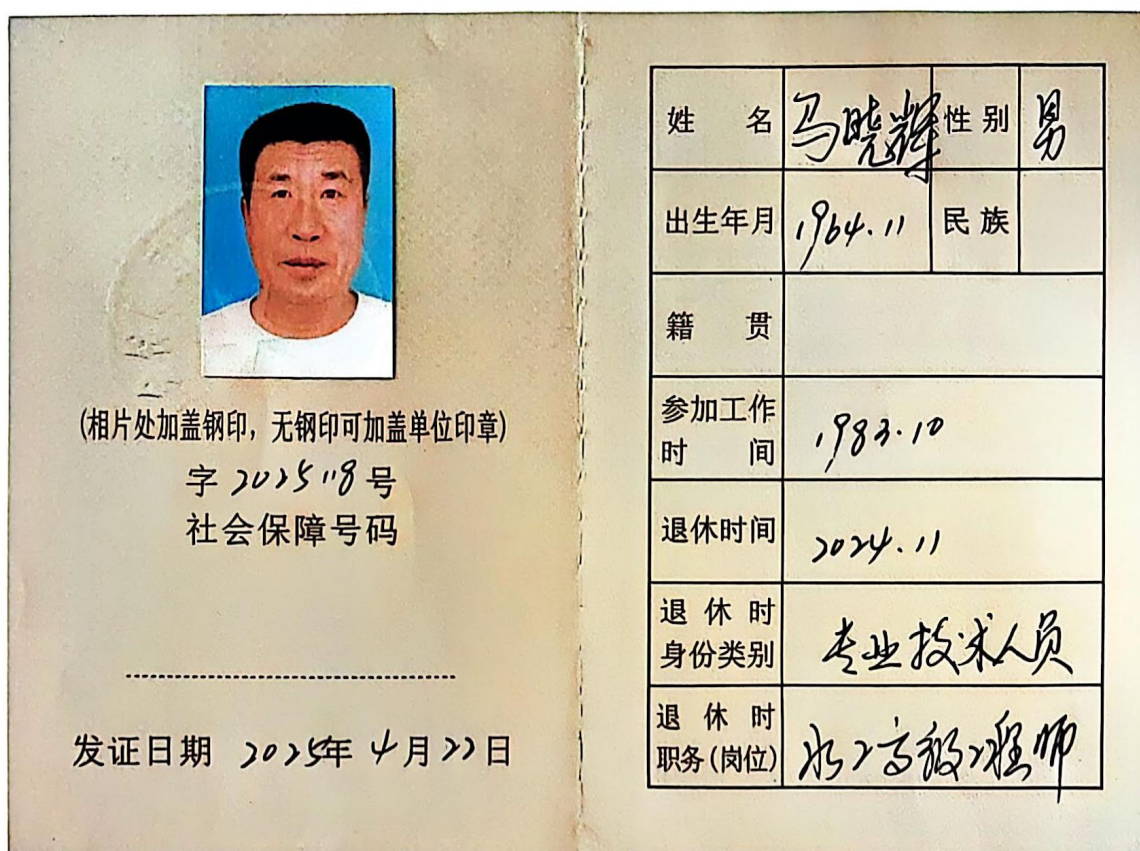 (相片处加盖钢印，无钢印可加盖单位印章)
字 2025118 号
社会保障号码
发证日期 2025年 4月22日
姓名 马晓辉 性别 男
出生年月 1964.11 民族
籍贯
参加工作时间 1983.10
退休时间 2024.11
退休时身份类别 专业技术人员
退休时职务(岗位) 水工高级工程师